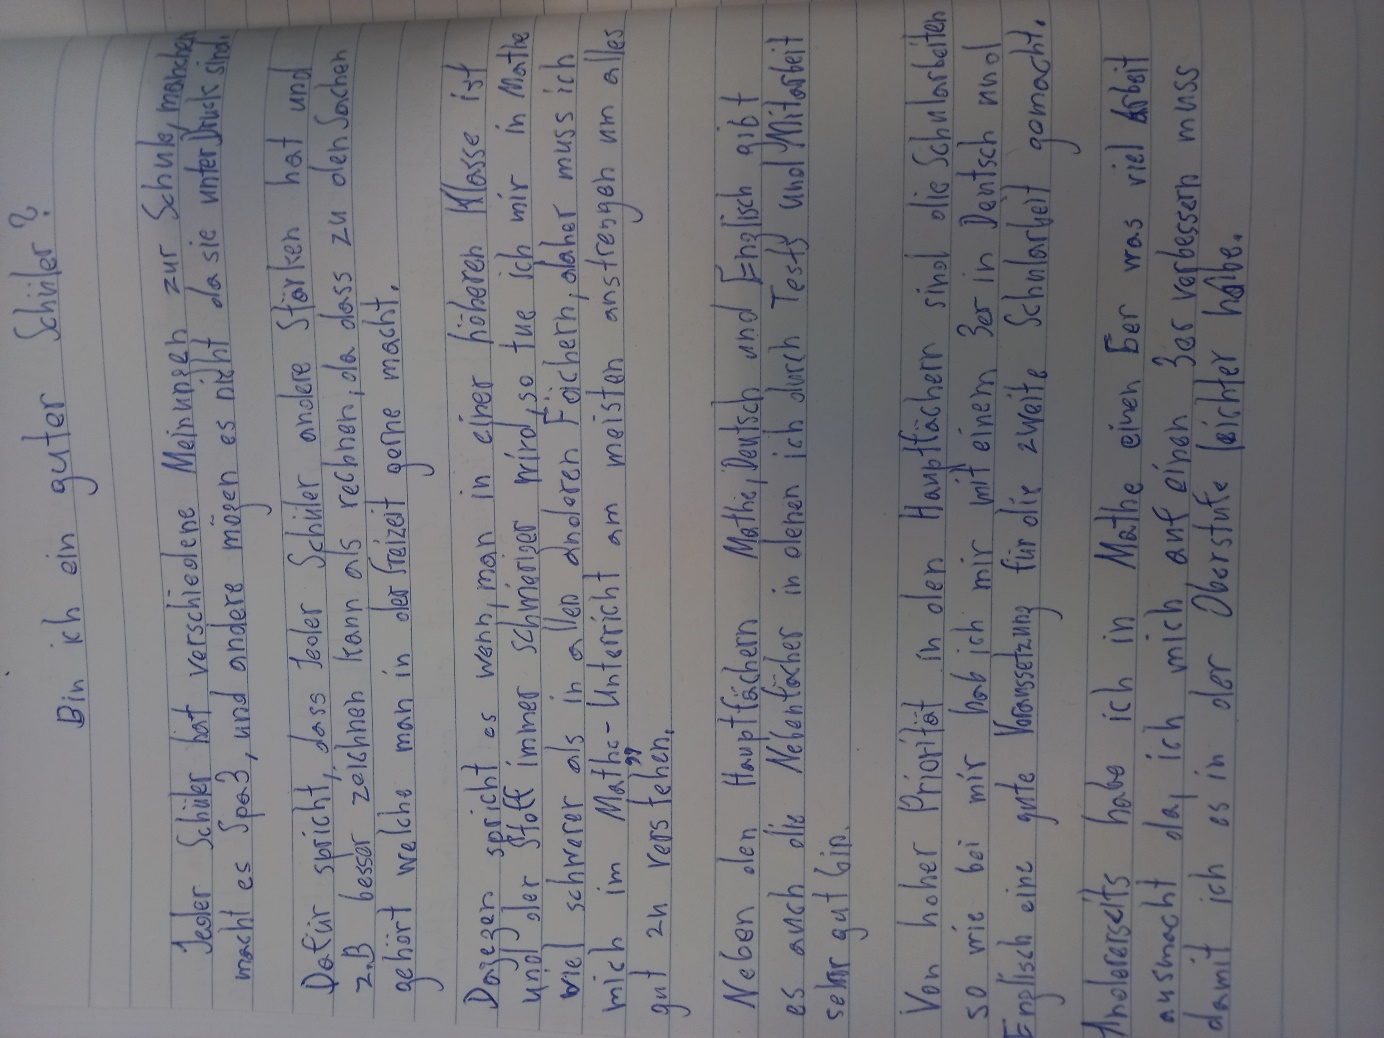 Bin ich ein guter Schüler?
Jeder Schüler hat verschiedene Meinungen zur Schule, manchen
macht es Spaß, und andere mögen es nicht da sie unter Druck sind.
Dafür spricht, dass Jeder Schüler andere Stärken hat und
z.B besser zeichnen kann als rechnen, da dass zu den Sachen
gehört welche man in der Freizeit gerne macht.
Dagegen spricht es wenn, man in einer höheren Klasse ist
und der Stoff immer schwieriger wird, so tue ich mir in Mathe
viel schwerer als in allen anderen Fächern, daher muss ich
mich im Mathe-Unterricht am meisten anstrengen um alles
gut zu verstehen.
Neben den Hauptfächern Mathe, Deutsch und Englisch gibt
es auch die Nebenfächer in denen ich durch Tests und Mitarbeit
sehr gut bin.
Von hoher Priorität in den Hauptfächern sind die Schularbeiten
so wie bei mir hab ich mir mit einem 3er in Deutsch und
Englisch eine gute Voraussetzung für die zweite Schularbeit gemacht.
Andererseits habe ich in Mathe einen 5er was viel Arbeit
ausmacht da, ich mich auf einen 3er verbessern muss
damit ich es in der Oberstufe leichter habe.